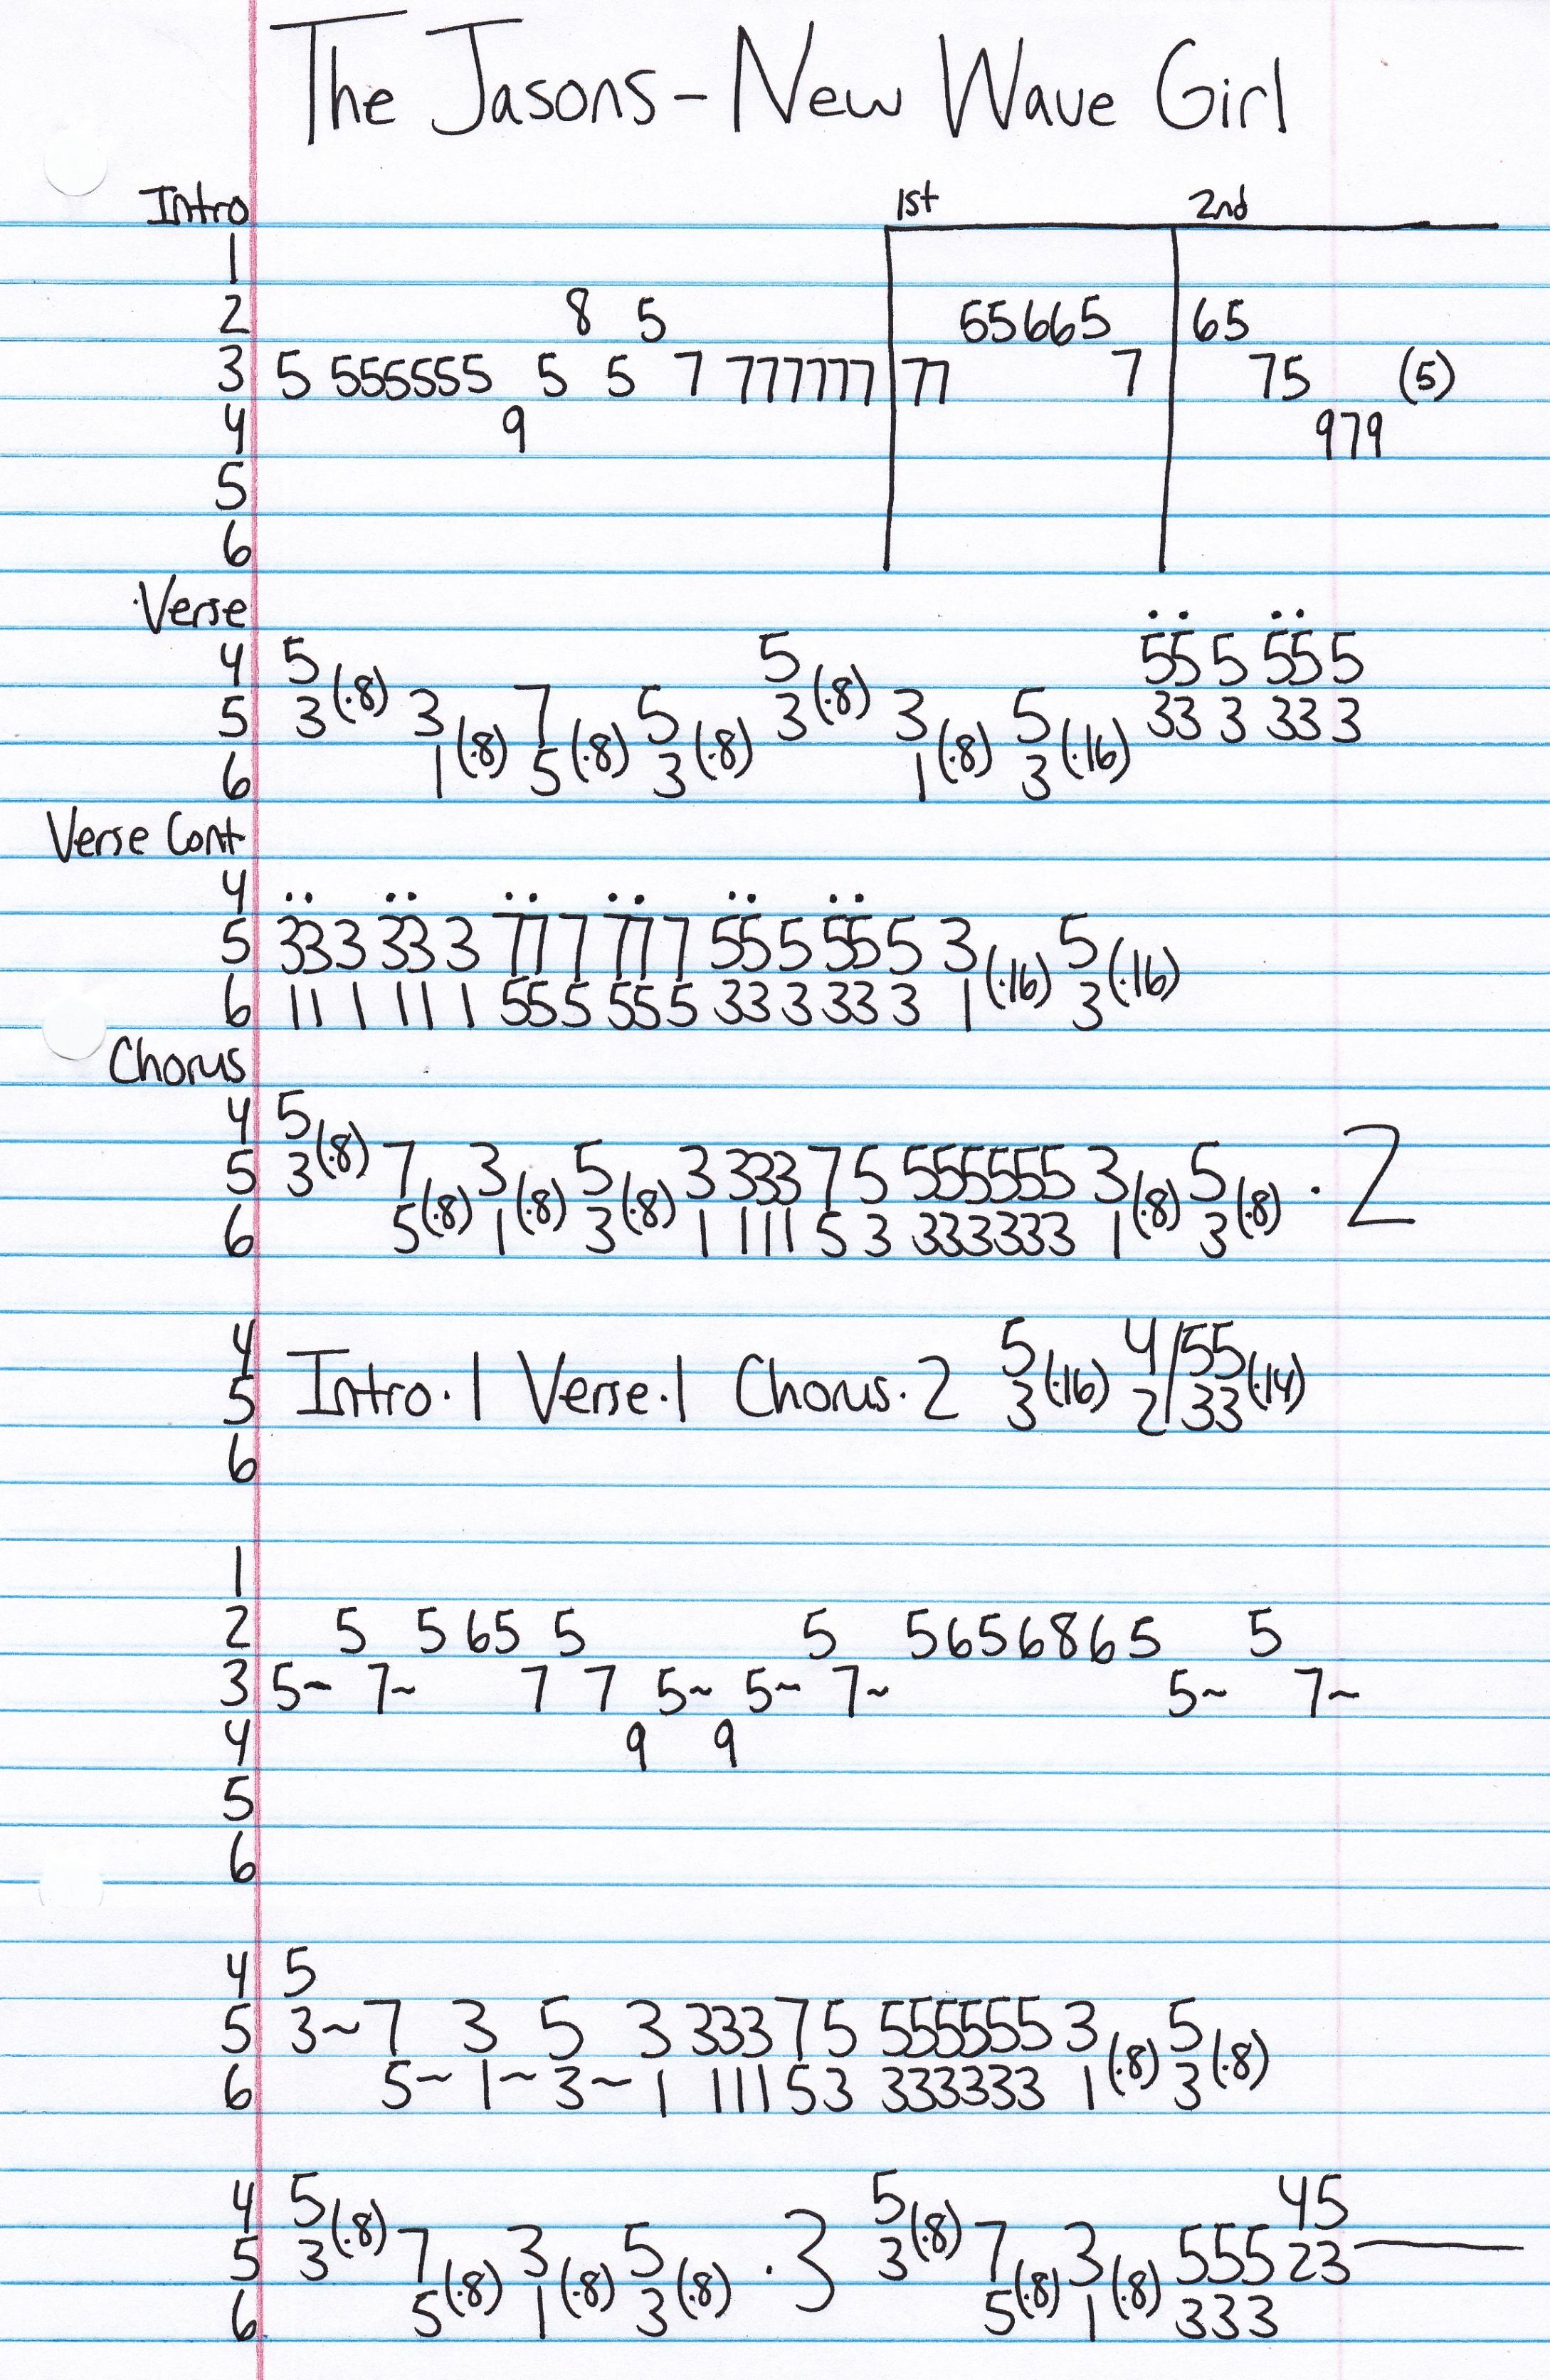 The Jasons - New Wave Girl
Intro 1st 2nd
1
2 8 5 55665 65
3 5 555555 5 5 7 777777 77 7 75 (5)
4 9 979
5
6
Verse .. ..
4 5 5 55 5 55 5
5 3(·8) 3 7 5 3(·8) 3 5 33 3 33 3
6 1(·8) 5(·8) 3(·8) 1(·8) 3(·16)
Verse Cont
4 .. .. .. .. .. ..
5 333 33 3 77 7 77 7 55 5 55 5 3 5
6 11 1 11 1 55 5 55 5 33 3 33 3 1(·16) 3(·16)
Chorus
4 5
5 3(·8) 7 3 5 3 333 7 5 555555 3 5 · 2
6 5(·8) 1(·8) 3(·8) 1 111 5 3 333333 1(·8) 3(·8)
4 5 4/55
5 Intro·1 Verse·1 Chorus·2 3(·16) 2/33(·14)
6
1
2 5 5 65 5 5 5656865 5
3 5~ 7~ 7 7 5~ 5~ 7~ 5~ 7~
4 9 9
5
6
4 5
5 3~ 7 3 5 3 333 7 5 555555 3 5
6 5~ 1~ 3~ 1 111 5 3 333333 1(·8) 3(·8)
4 5 5 45
5 3(·8) 7 3 5 · 3 3(·8) 7 3 555 23
6 5(·8) 1(·8) 3(·8) 5(·8) 1(·8) 333